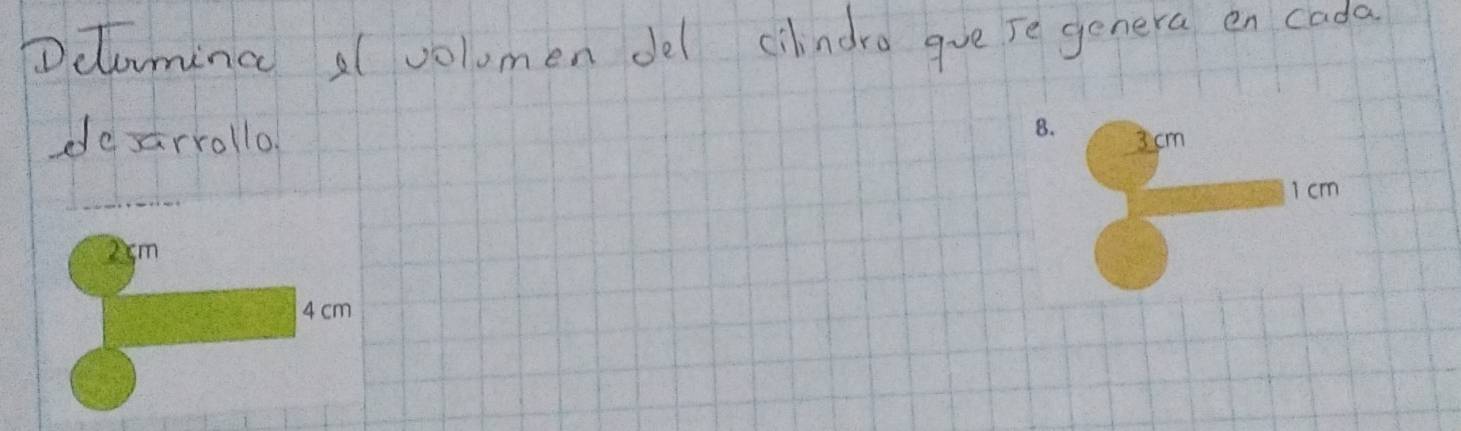 Determina el volumen del cilindro que se genera en cada
desarrollo.
B.
3 cm
1 cm
2 cm
4 cm